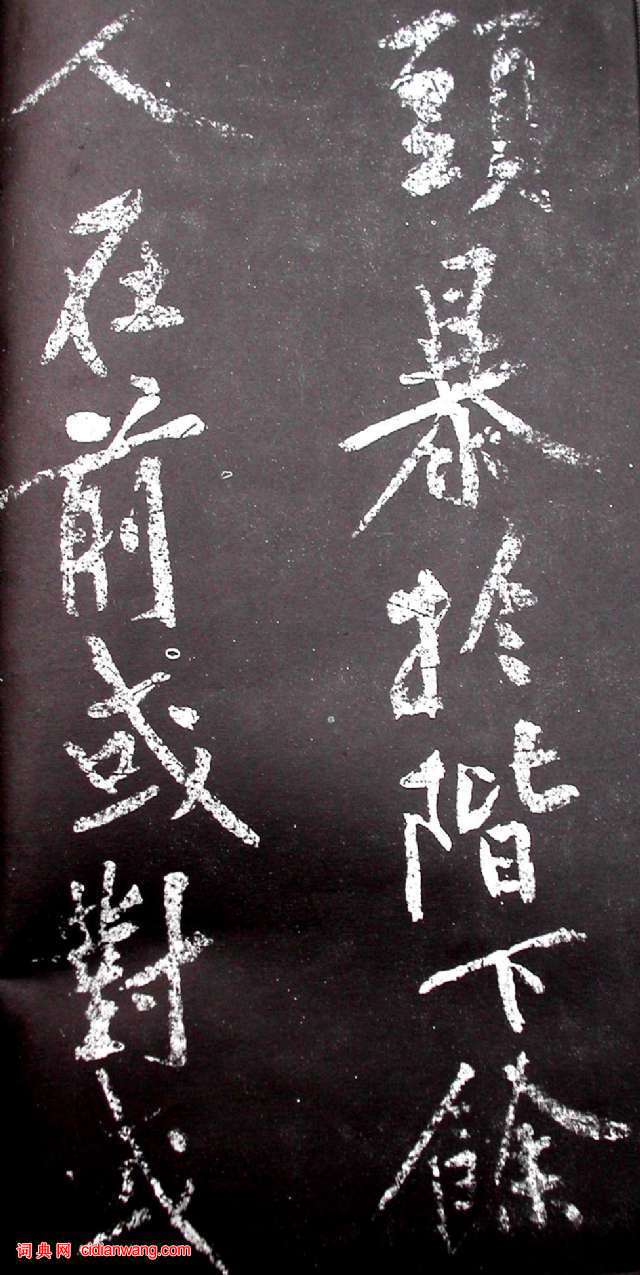 頭暴於階下餘
人在前或對或
词典网 cidianwang.com